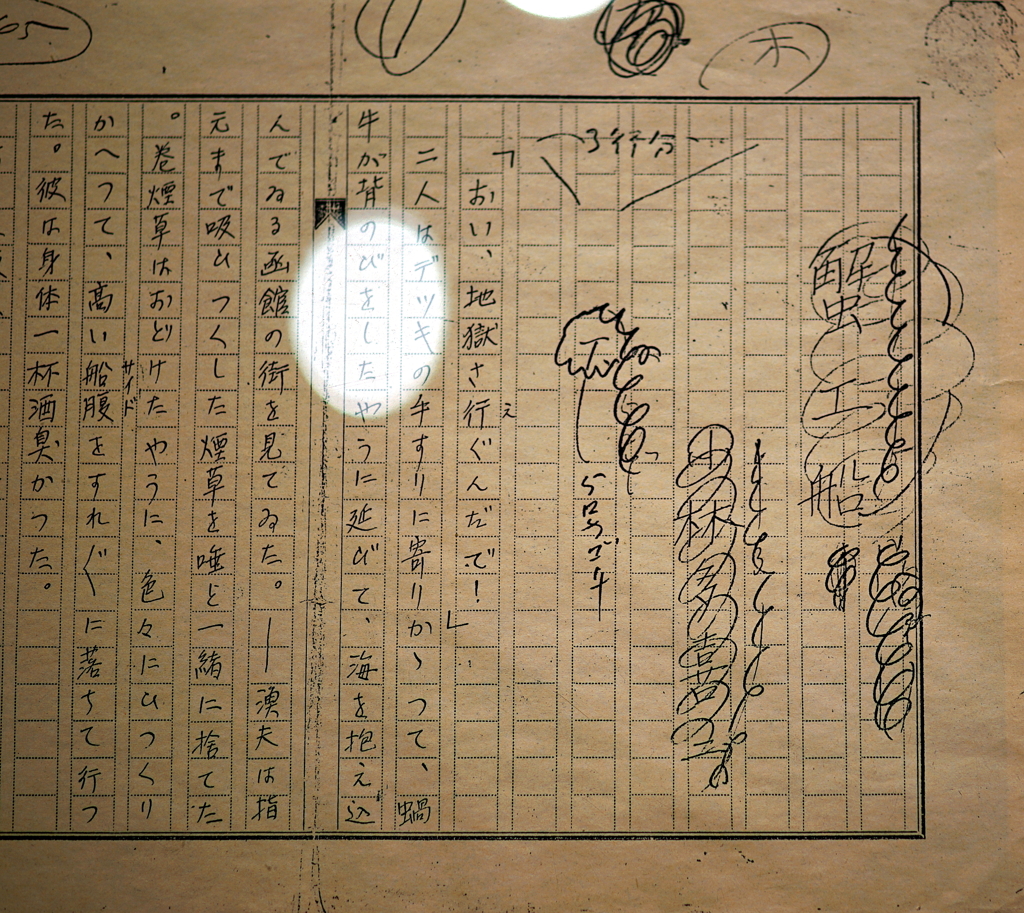 蟹工船
小林多喜二
3行分
「おい、地獄さ行ぐんだで!」
え
二人はデツキの手すりに寄りかゝつて、蝸
牛が背のびをしたやうに延びて、海を抱え込
んでゐる函館の街を見てゐた。――漁夫は指
元まで吸ひつくした煙草を唾と一緒に捨てた
。巻煙草はおどけたやうに、色々にひつくり
かへつて、高い船腹をすれ〲に落ちて行つ
サイド
た。彼は身体一杯酒臭かつた。